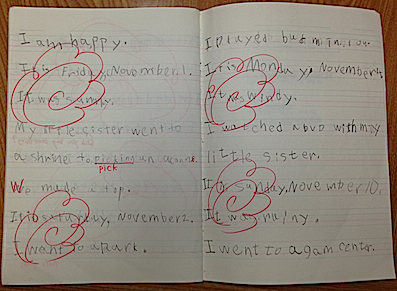 I am happy.
It is Friday, November 1.
It was sunny.
My little sister went to
a shrine to picking an acorn.
pick
We made a top.
It is saturday, November 2.
I went to a park.
I played badminton.
It is Monday, November 4.
It was windy.
I watched a DVD with my
little sister.
It is sunday, November 10.
It was rainy.
I went to a gam center.